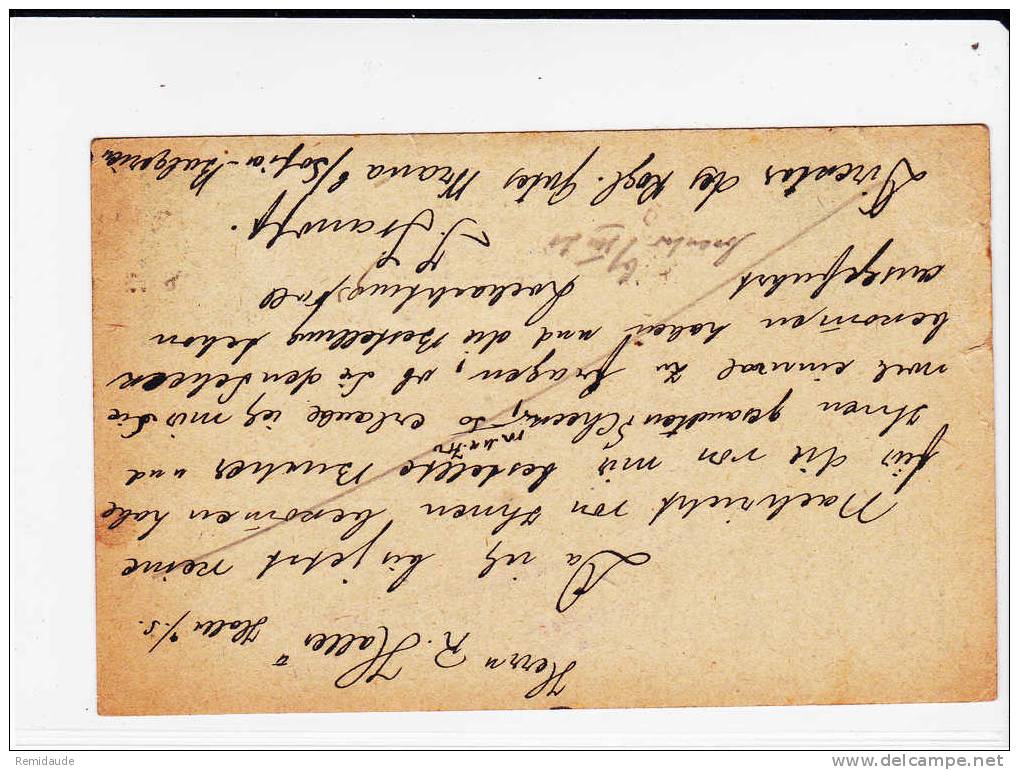 Herrn R. Haller
Halle a/S.
Da ich bis jetzt keine
Nachricht von Ihnen bekommen habe
für die von mir bestellte Bücher und
Ihnen gesandten Scheck, so erlaube ich mir Sie
noch einmal zu fragen, ob Sie den Scheck
bekommen haben und die Bestellung schon
ausgeführt
Hochachtungsvoll
Director des Kögl. Gutes Vrana b/Sofia-Bulgarien
Remidaude
delcampe.net